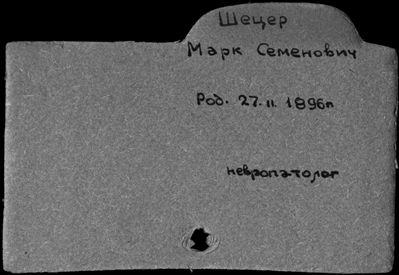 Шецер
Марк Семенович
Род. 27.II.1896г
невропатолог